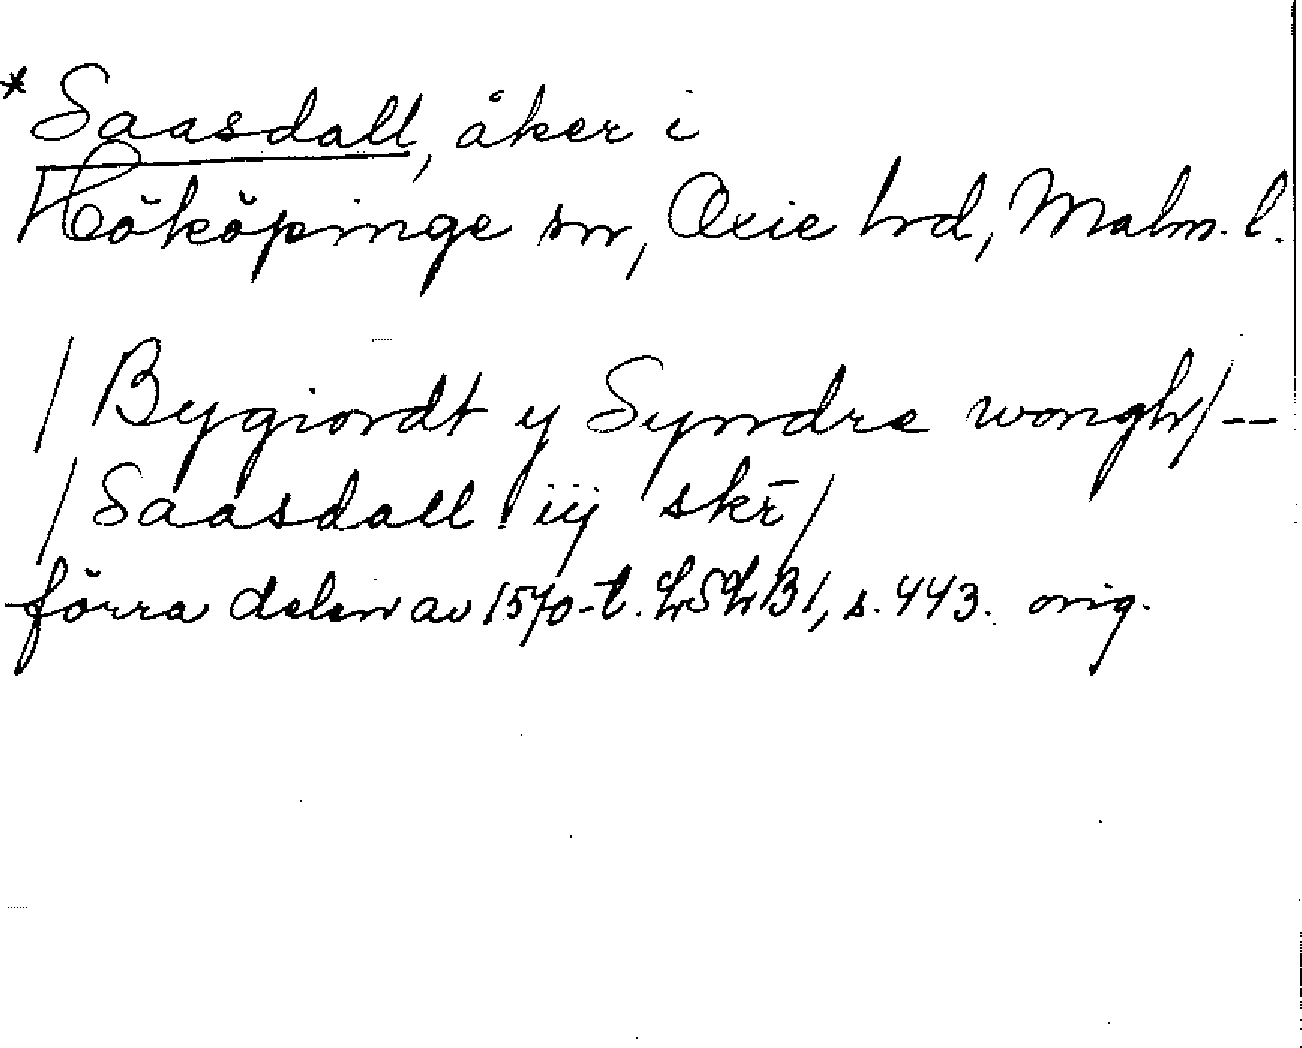 * Saasdall, åker i
Hököpinge sn, Oxie hd, Malm. l.
/ Bygiordt y Syndre wongh / --
/ Saasdall iij skr̄ /
förra delen av 1570-t. LSLB1, s. 443. orig.